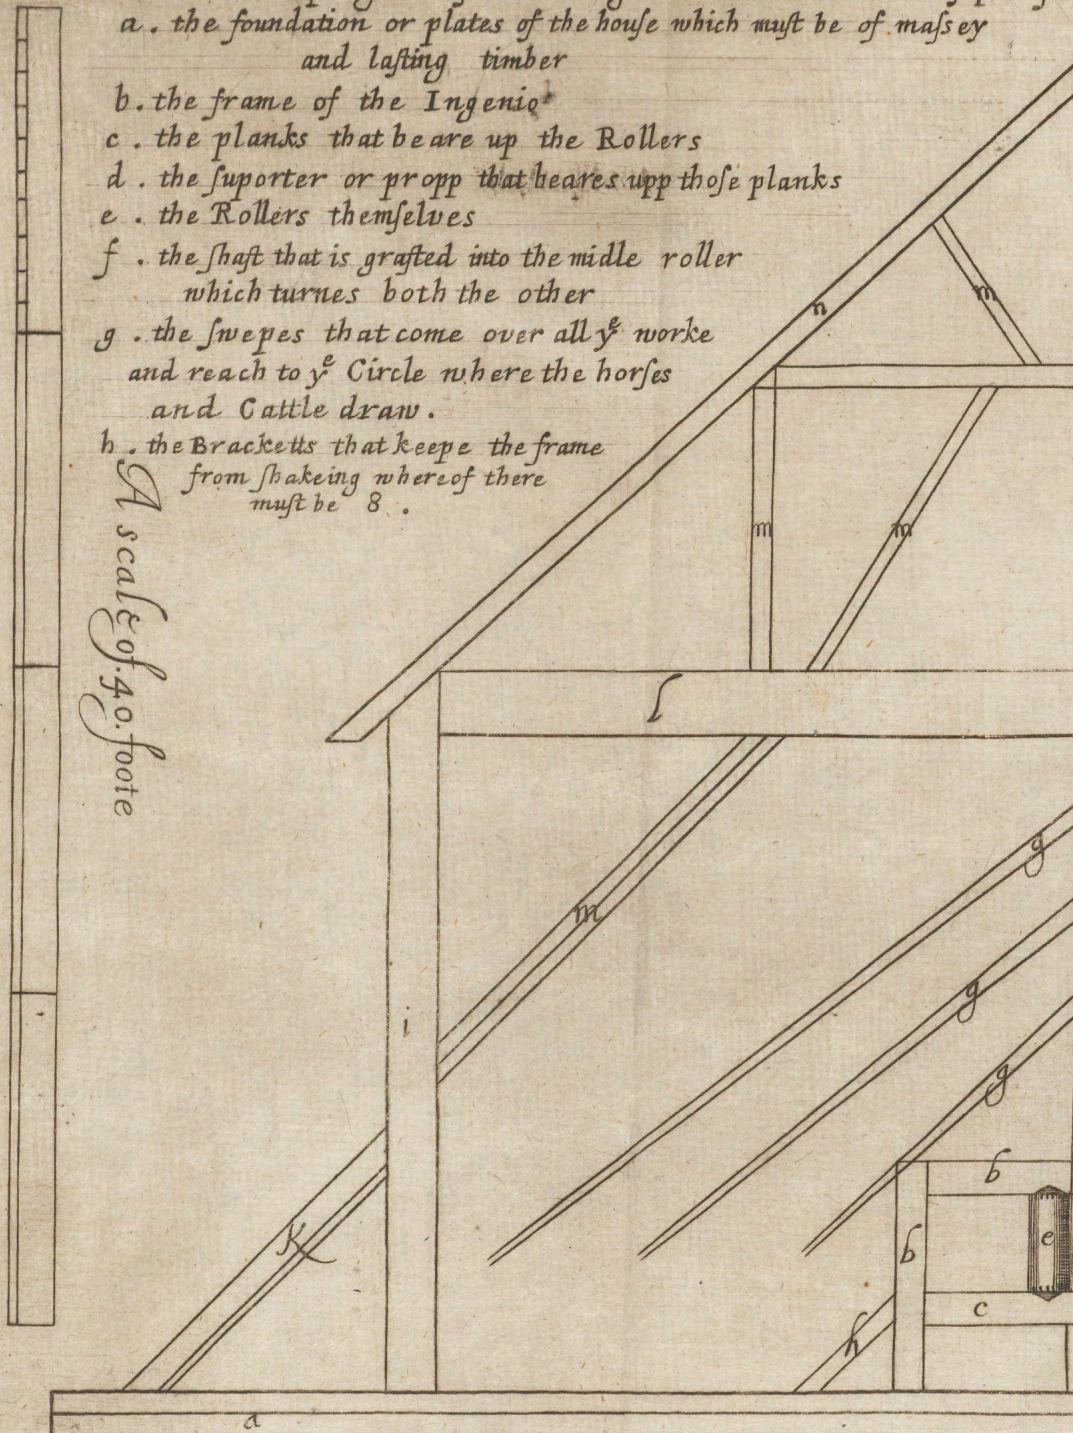 a . the foundation or plates of the houſe which muſt be of maſsey
and laſting timber
b . the frame of the Ingenio
c . the planks that beare up the Rollers
d . the ſuporter or propp that beares upp thoſe planks
e . the Rollers themſelves
f . the ſhaft that is grafted into the midle roller
which turnes both the other
g . the ſwepes that come over all yᵉ worke
and reach to yᵉ Circle where the horſes
and Cattle draw .
h . the Bracketts that keepe the frame
from ſhakeing whereof there
muſt be 8 .
A scale of . 40 . foote
n
m
m
m
l
g
m
g
i
g
b
K
b
e
c
h
a